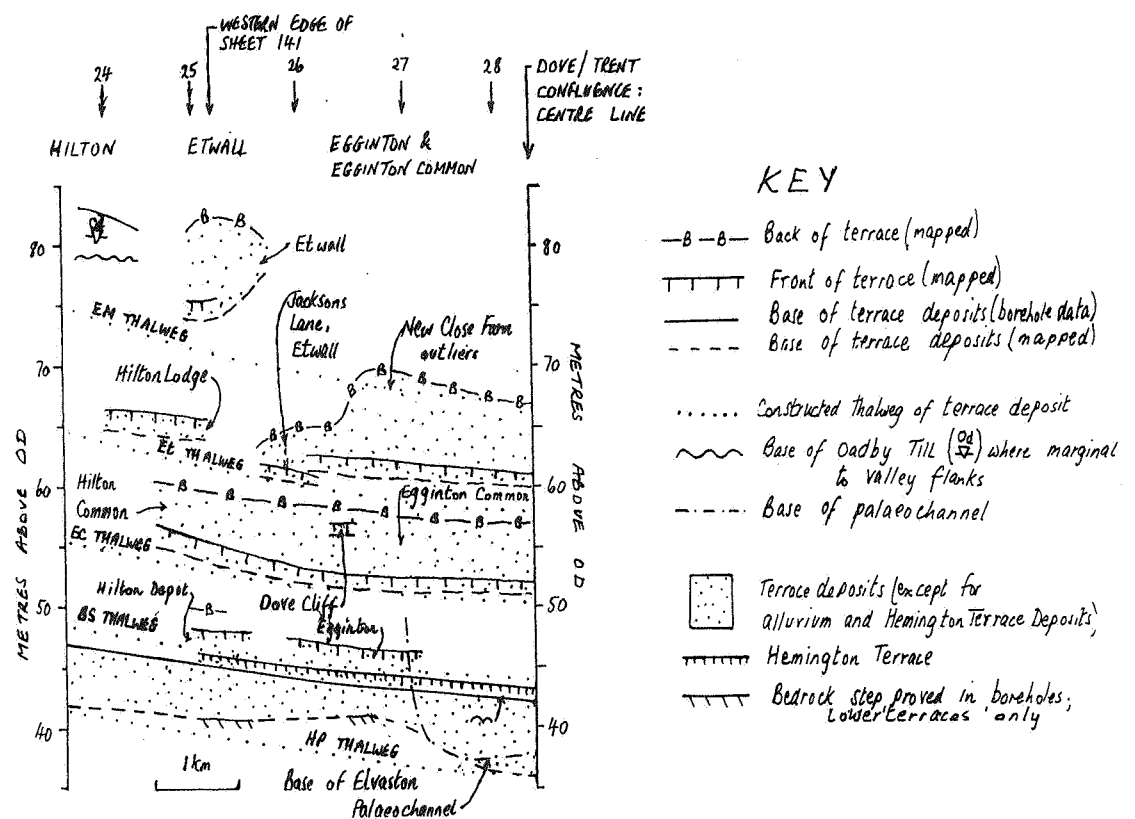 WESTERN EDGE OF
SHEET 141
24
25
26
27
28
DOVE/TRENT
CONFLUENCE:
CENTRE LINE
HILTON
ETWALL
EGGINTON &
EGGINTON COMMON
KEY
80
70
60
50
40
METRES ABOVE OD
80
70
60
50
40
METRES ABOVE OD
Od
B
B
Etwall
EM THALWEG
Jacksons
Lane,
Etwall
New Close Farm
outliers
B
B
B
B
B
Hilton Lodge
B
B
B
Et THALWEG
Hilton
Common
B
B
B
B
B
B
B
B
Egginton Common
EC THALWEG
Hilton Depot
B
Dove Cliff
Egginton
BS THALWEG
HP THALWEG
1km
Base of Elvaston
Palaeochannel
—B—B— Back of terrace (mapped)
Front of terrace (mapped)
Base of terrace deposits (borehole data)
Base of terrace deposits (mapped)
Constructed Thalweg of terrace deposit
Base of Oadby Till (Od) where marginal
to valley flanks
Base of palaeochannel
Terrace deposits (except for
alluvium and Hemington Terrace Deposits)
Hemington Terrace
Bedrock step proved in boreholes;
Lower terraces only